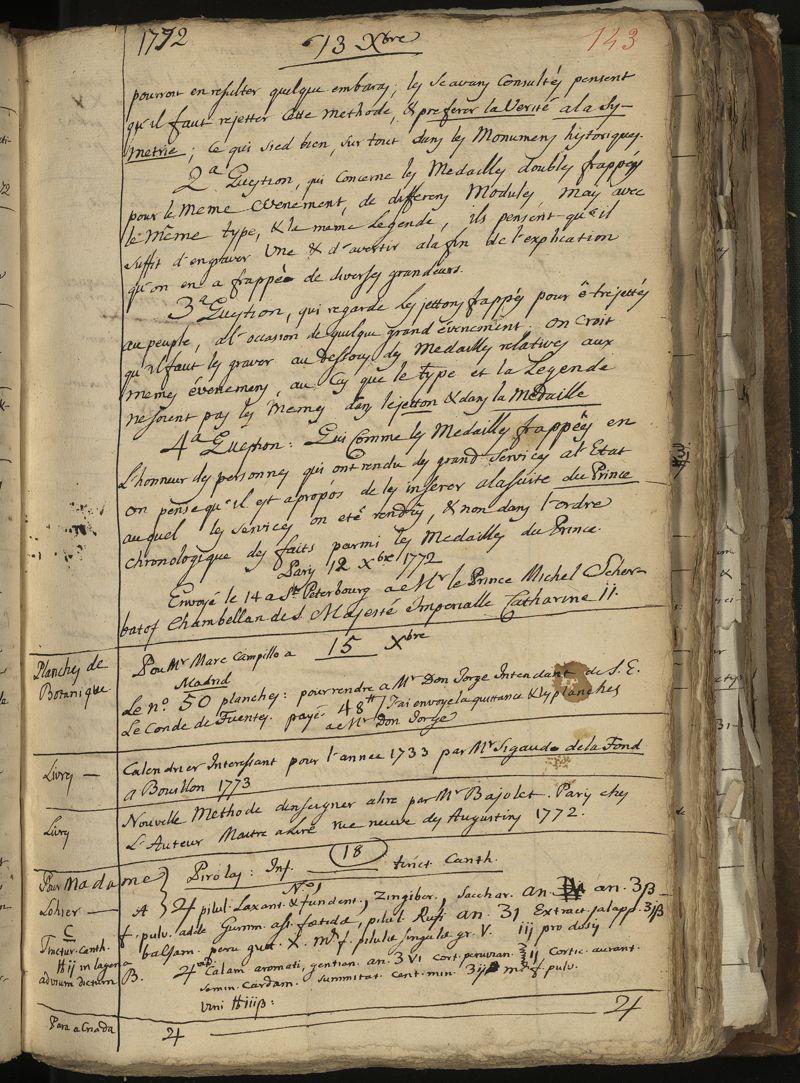 1772
13 Xbre
143
pourroit en resulter quelque embaras; les Scavans Consultés pensent
qu'il faut rejetter cette methode, & preferer la Verité a la Sy-
metrie; ce qui sied bien, sur tout dans les Monumens historiques.
2a Question, qui concerne les Medailles doubles frappées
pour le meme evenement, de differens Modules, mais avec
le même type, & le meme Legende, ils pensent qu'il
suffit d'en graver Une & d'avertir a la fin de l'explication
qu'on en a frappée de diverses grandeurs.
3a Question, qui regarde les jettons frappés pour être jettés
au peuple, a l'occasion de quelque grand évenement. on croit
qu'il faut les graver au dessous des Medailles relatives aux
memes évenemens, au Cas que le type et la Legende
ne soient pas les memes dans le jetton & dans la Medaille
4a Question: Qui Comme les Medailles frappées en
L'honneur des personnes qui ont rendu des grand Services a l'Etat
on pense qu'il est apropós de les inserer a la suite du Prince
auquel les services on eté rendus, & non dans l'ordre
chronologique des faits parmi les Medailles du Prince.
Paris 12 Xbre 1772
Envoyé le 14 a St. Peterbourg a Mr. le Prince Michel Scher-
batof Chambellan de S. Majesté Imperialle Catharine II.
15 Xbre
Planches de
Botanique
Pou Mr Marc Campillo a
Madrid
Le no. 50 planches: pour rendre a Mr Don Jorge Intendant de S. E.
Le Conde de Fuentes. payé 48 tt / J'ai envoye la quittance & les planches
a Mr Don Jorge
Livres
Calendrier Interessant pour l'année 1733 par Mr Sigaud de la Fond
a Bouillon 1773
Livres
Nouvelle Methode d'enseigner a lire par Mr Bajolet. Paris ches
L'Auteur Maitre a Lire rue neuve des Augustins 1772.
18
Pour Madame
Lohier
Pirolas: Inf. tinct. Canth.
No. 1
A ♃ pilul. Laxant. & fundent., Zingiber., Sacchar. an. an. ʒß
f. pulv. adde Gumm. ass. foetidæ, pilul. Rufi an. ʒ1 Extract jalapp. ʒiß
balsam. peru gutt. X. m. f. pilulæ singulæ gr. V. iij pro dosi
C
Tinctur. Canth.
℔ ij in lagena
B. ♃ Calam aromati, gentian. an. ʒ VI cort. peruvian. ℥ij Cortic. aurant.
Semin. Cardam. summitat. Cent. min. ʒij m. f. pulv.
Vini ℔iiiß:
Para a Criada
♃
♃